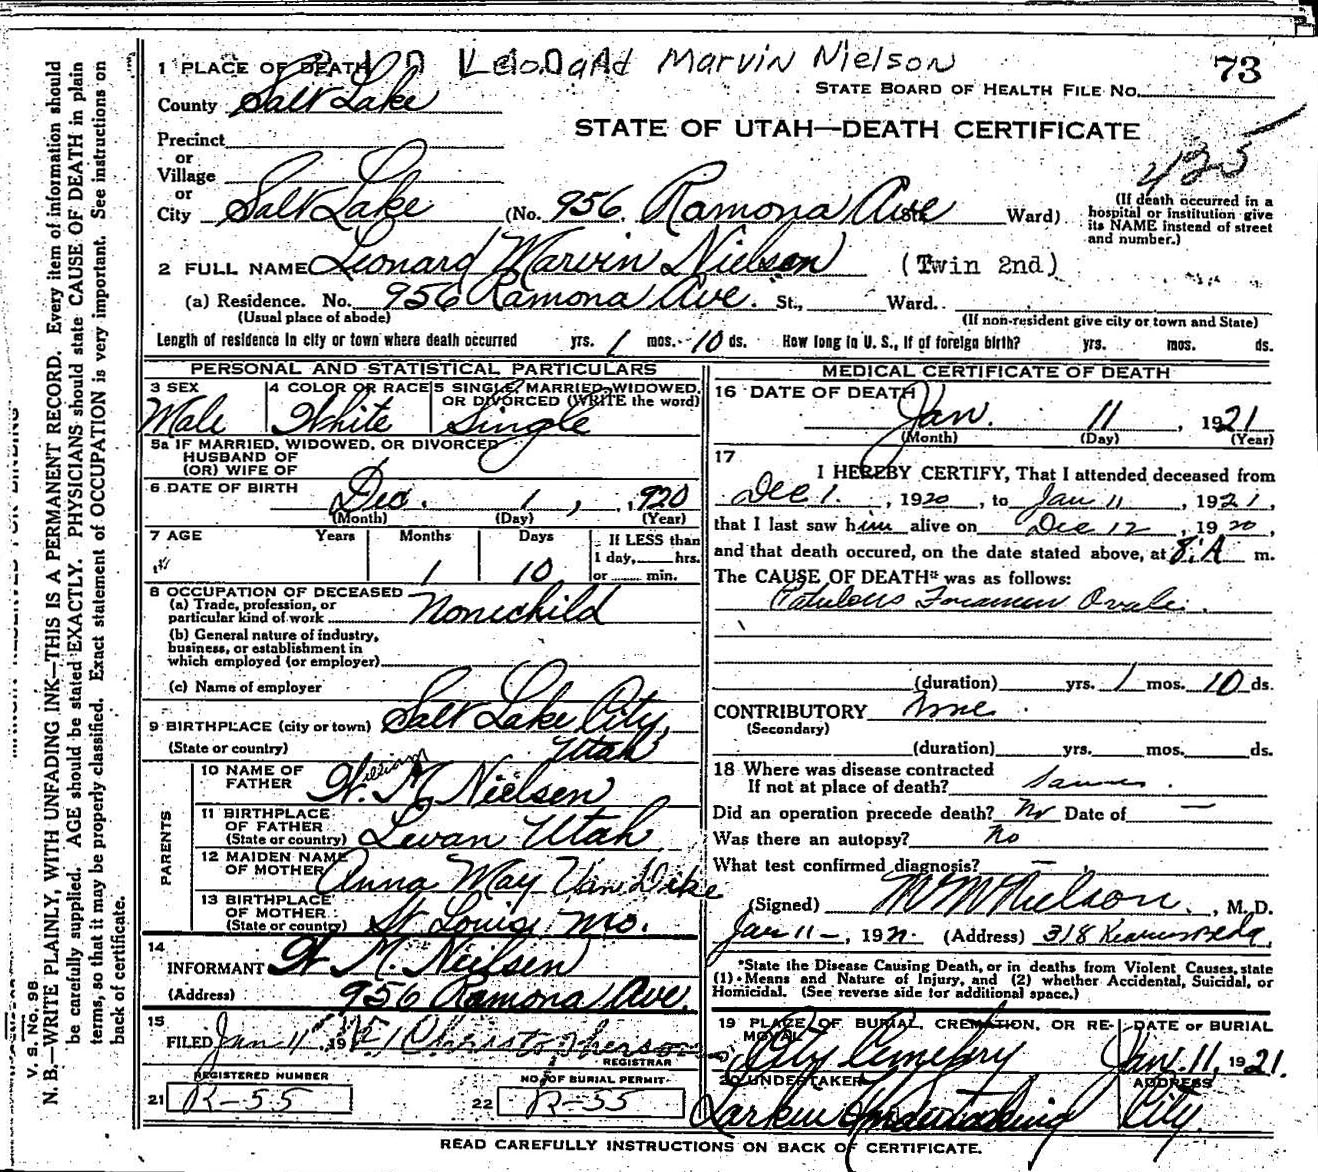 Marvin Nielson
73
1 PLACE OF DEATH
STATE BOARD OF HEALTH FILE No.
County Salt Lake
STATE OF UTAH—DEATH CERTIFICATE
Precinct
or
Village
425
or
City Salt Lake (No. 956 Ramona Ave St. Ward)
(If death occurred in a
hospital or institution give
its NAME instead of street
and number.)
2 FULL NAME Leonard Marvin Nielsen (Twin 2nd)
(a) Residence. No. 956 Ramona Ave. St., Ward.
(Usual place of abode) (If non-resident give city or town and State)
Length of residence in city or town where death occurred yrs. 1 mos. 10 ds. How long in U. S., if of foreign birth? yrs. mos. ds.
PERSONAL AND STATISTICAL PARTICULARS
3 SEX
Male
4 COLOR OR RACE
White
5 SINGLE, MARRIED, WIDOWED,
OR DIVORCED (WRITE the word)
Single
5a IF MARRIED, WIDOWED, OR DIVORCED
HUSBAND OF
(OR) WIFE OF
6 DATE OF BIRTH
Dec. 1, 1920
(Month) (Day) (Year)
7 AGE Years Months Days If LESS than
1 day, hrs.
1 10 or min.
8 OCCUPATION OF DECEASED
(a) Trade, profession, or
particular kind of work None child
(b) General nature of industry,
business, or establishment in
which employed (or employer)
(c) Name of employer
9 BIRTHPLACE (city or town) Salt Lake City,
(State or country) Utah
PARENTS
10 NAME OF
FATHER William M Nielsen
11 BIRTHPLACE
OF FATHER
(State or country) Levan Utah
12 MAIDEN NAME
OF MOTHER Anna May Van Dike
13 BIRTHPLACE
OF MOTHER
(State or country) St Louis Mo.
14
INFORMANT W. M. Nielsen
(Address) 956 Ramona Ave.
15
FILED Jan 11 1921 Christopherson
REGISTRAR
REGISTERED NUMBER
21 R-55
NO. OF BURIAL PERMIT
22 R-55
MEDICAL CERTIFICATE OF DEATH
16 DATE OF DEATH
Jan. 11, 1921
(Month) (Day) (Year)
17
I HEREBY CERTIFY, That I attended deceased from
Dec 1., 1920, to Jan 11, 1921,
that I last saw him alive on Dec 12, 1920,
and that death occured, on the date stated above, at 8. A m.
The CAUSE OF DEATH* was as follows:
Patulous Foramen Ovale.
(duration) yrs. 1 mos. 10 ds.
CONTRIBUTORY None.
(Secondary)
(duration) yrs. mos. ds.
18 Where was disease contracted
If not at place of death?
Did an operation precede death? No Date of —
Was there an autopsy? No
What test confirmed diagnosis? —
(Signed) M M Nielson, M. D.
Jan 11 —, 192 (Address) 318 Kearns Bldg.
*State the Disease Causing Death, or in deaths from Violent Causes, state
(1) Means and Nature of Injury, and (2) whether Accidental, Suicidal, or
Homicidal. (See reverse side for additional space.)
19 PLACE OF BURIAL, CREMATION, OR RE-
MOVAL
City Cemetery
DATE OF BURIAL
Jan. 11, 1921.
20 UNDERTAKER
Larkin Undertaking
ADDRESS
City.
READ CAREFULLY INSTRUCTIONS ON BACK OF CERTIFICATE.
V. S. No. 98.
N. B.—WRITE PLAINLY, WITH UNFADING INK—THIS IS A PERMANENT RECORD. Every item of information should
be carefully supplied. AGE should be stated EXACTLY. PHYSICIANS should state CAUSE OF DEATH in plain
terms, so that it may be properly classified. Exact statement of OCCUPATION is very important. See instructions on
back of certificate.